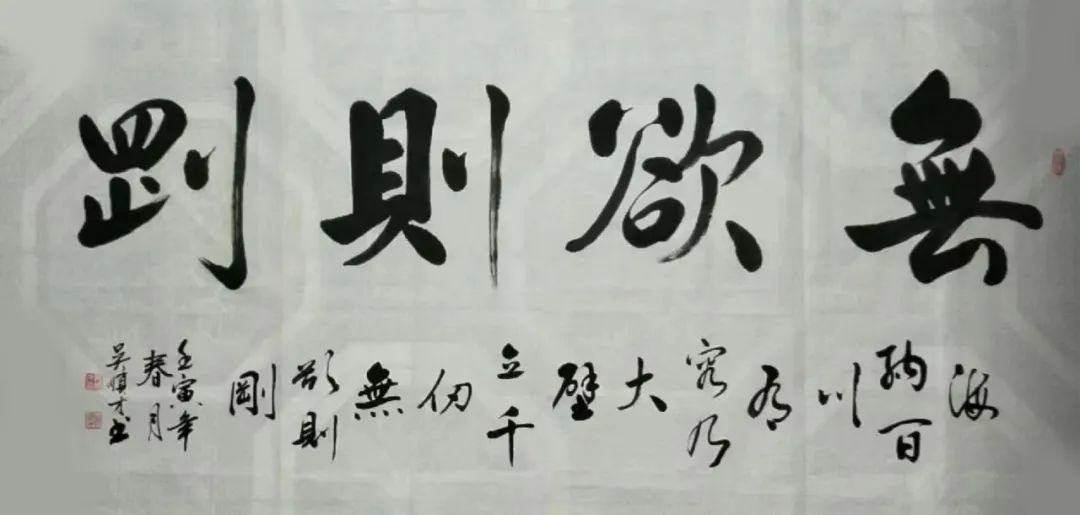 無欲則剛
海納百川有容乃大壁立千仞無欲則剛
壬寅年
春月
吴才书